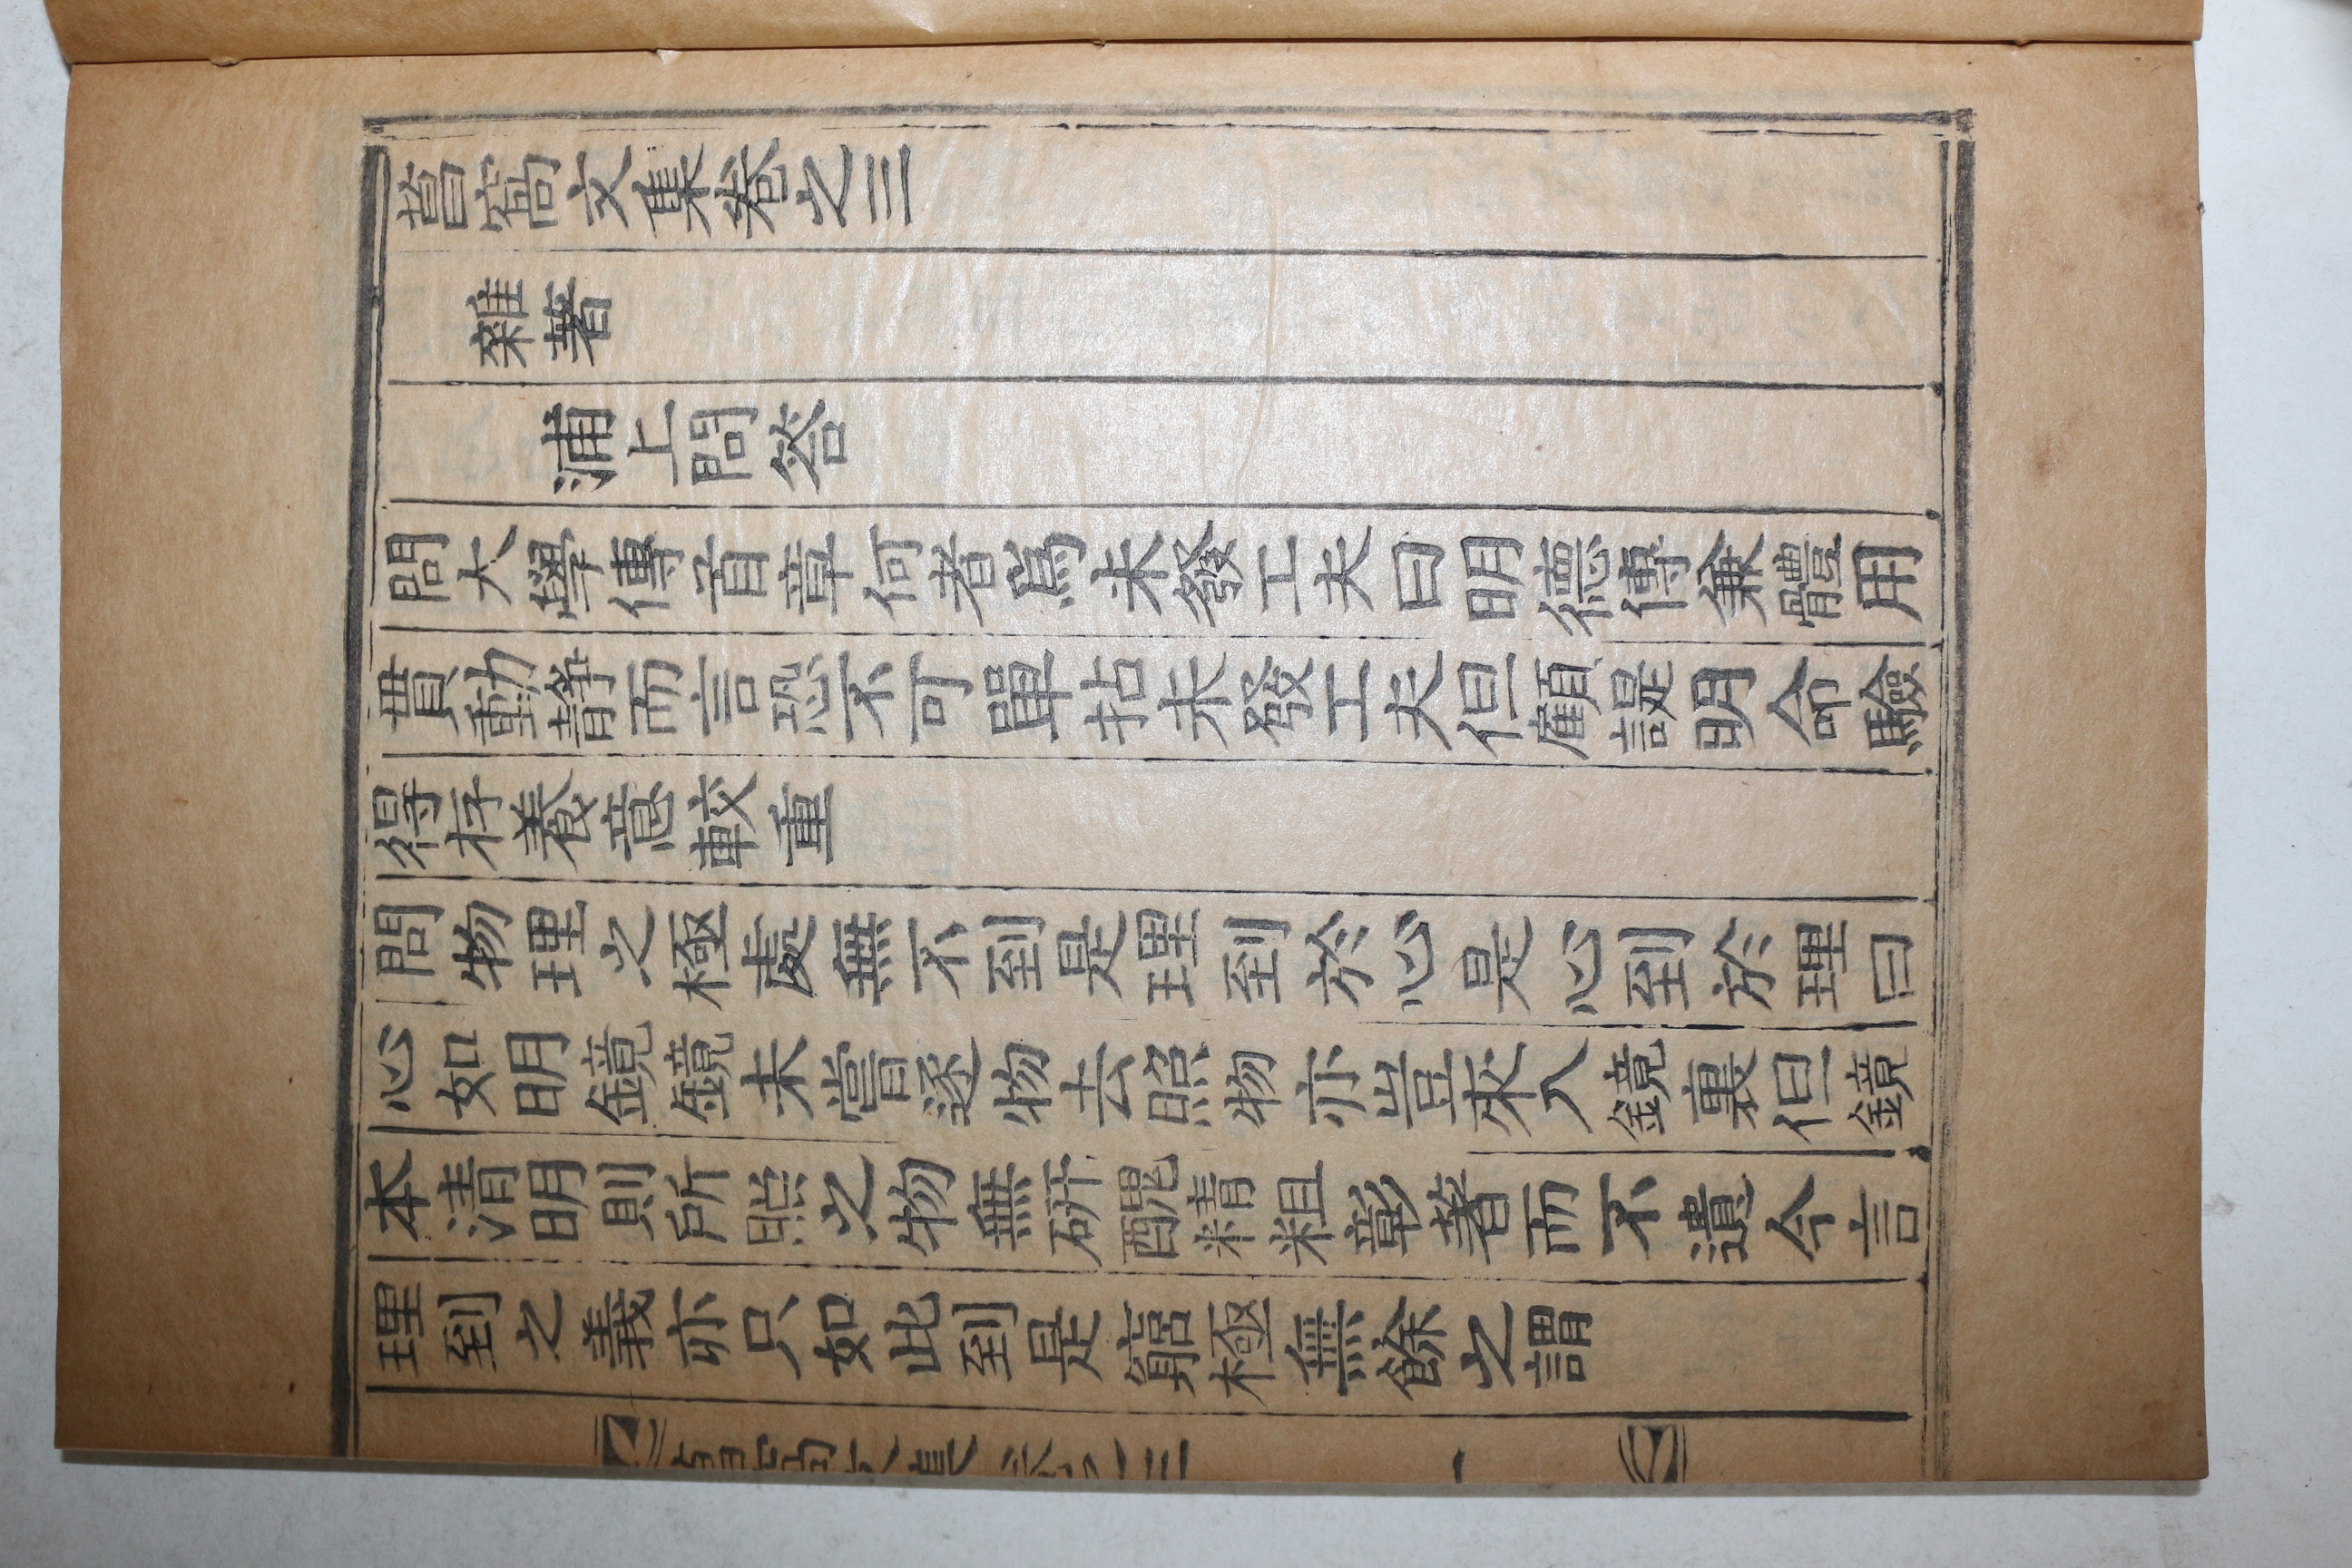 菖窩文集卷之三
雜著
浦上問答
問大學傳首章何者爲未發工夫曰明德傳兼體用
貫動靜而言恐不可單拈未發工夫但顧諟明命驗
得存養意較重
問物理之極處無不到是理到於心是心到於理曰
心如明鏡鏡未嘗逐物去照物亦豈來入鏡裏但鏡
本清明則所照之物無硏醜精粗彰著而不遺今言
理到之義亦只如此到是窮極無餘之謂
菖窩文集 卷之三 一